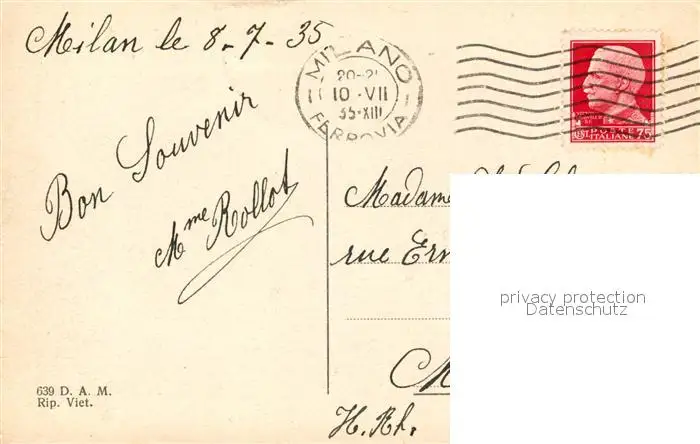 Milan le 8-7-35
MILANO
20-21
10·VII
35·XIII
FERROVIA
POSTE
ITALIANE
CENT 75
Bon Souvenir
Mme Rollot
Madame
rue Ern
M
H.Rh.
privacy protection
Datenschutz
639 D. A. M.
Rip. Viet.